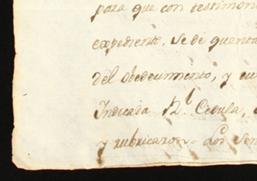 para que con testimoni
expediente, se dè quenta
del obedecimiento, y cu
Indicada Rl. Cedula,
y rubricaron - Los Señ